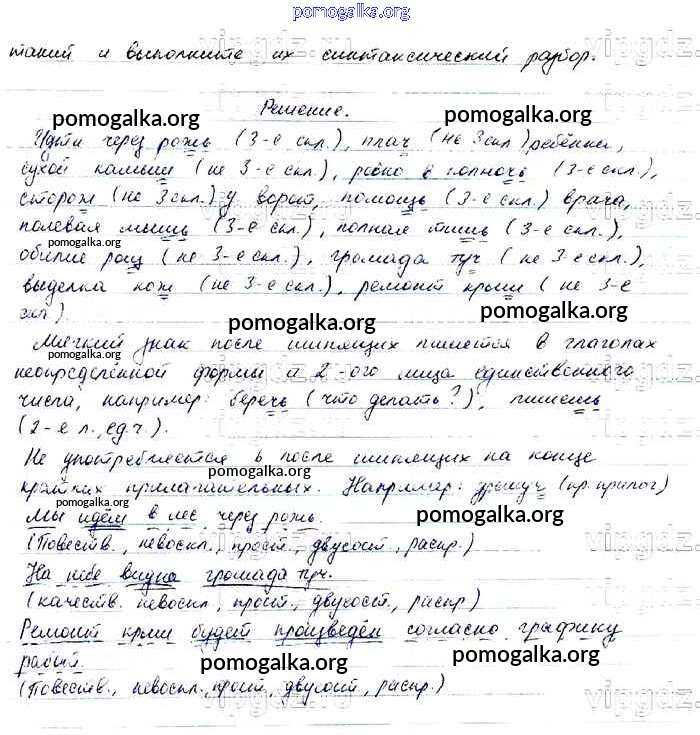 pomogalka.org
таний и выполните их синтаксический разбор.
Решение.
Идти через рожь (3-е скл.), плач (не 3 скл.) ребёнка,
сухой камыш (не 3-е скл.), ровно в полночь (3-е скл.),
сторож (не 3 скл.) у ворот, помощь (3-е скл.) врача,
полевая мышь (3-е скл.), полная тишь (3-е скл.),
обилие рощ (не 3-е скл.), громада туч (не 3-е скл.),
выделка кож (не 3-е скл.), ремонт крыш (не 3-е
скл.).
Мягкий знак после шипящих пишется в глаголах
неопределённой формы и 2-ого лица единственного
числа, например: беречь (что делать?), пишешь
(2-е л., ед.ч.).
Не употребляется ь после шипящих на конце
кратких прилагательных. Например: дремуч (кр. прилаг)
Мы идём в лес через рожь.
(Повеств., невоскл., прост., двусост., распр.)
На небе видна громада туч.
(качеств. невоскл., прост., двусост., распр)
Ремонт крыш будет произведён согласно графику
работ.
(Повеств., невоскл., прост., двусост., распр.)